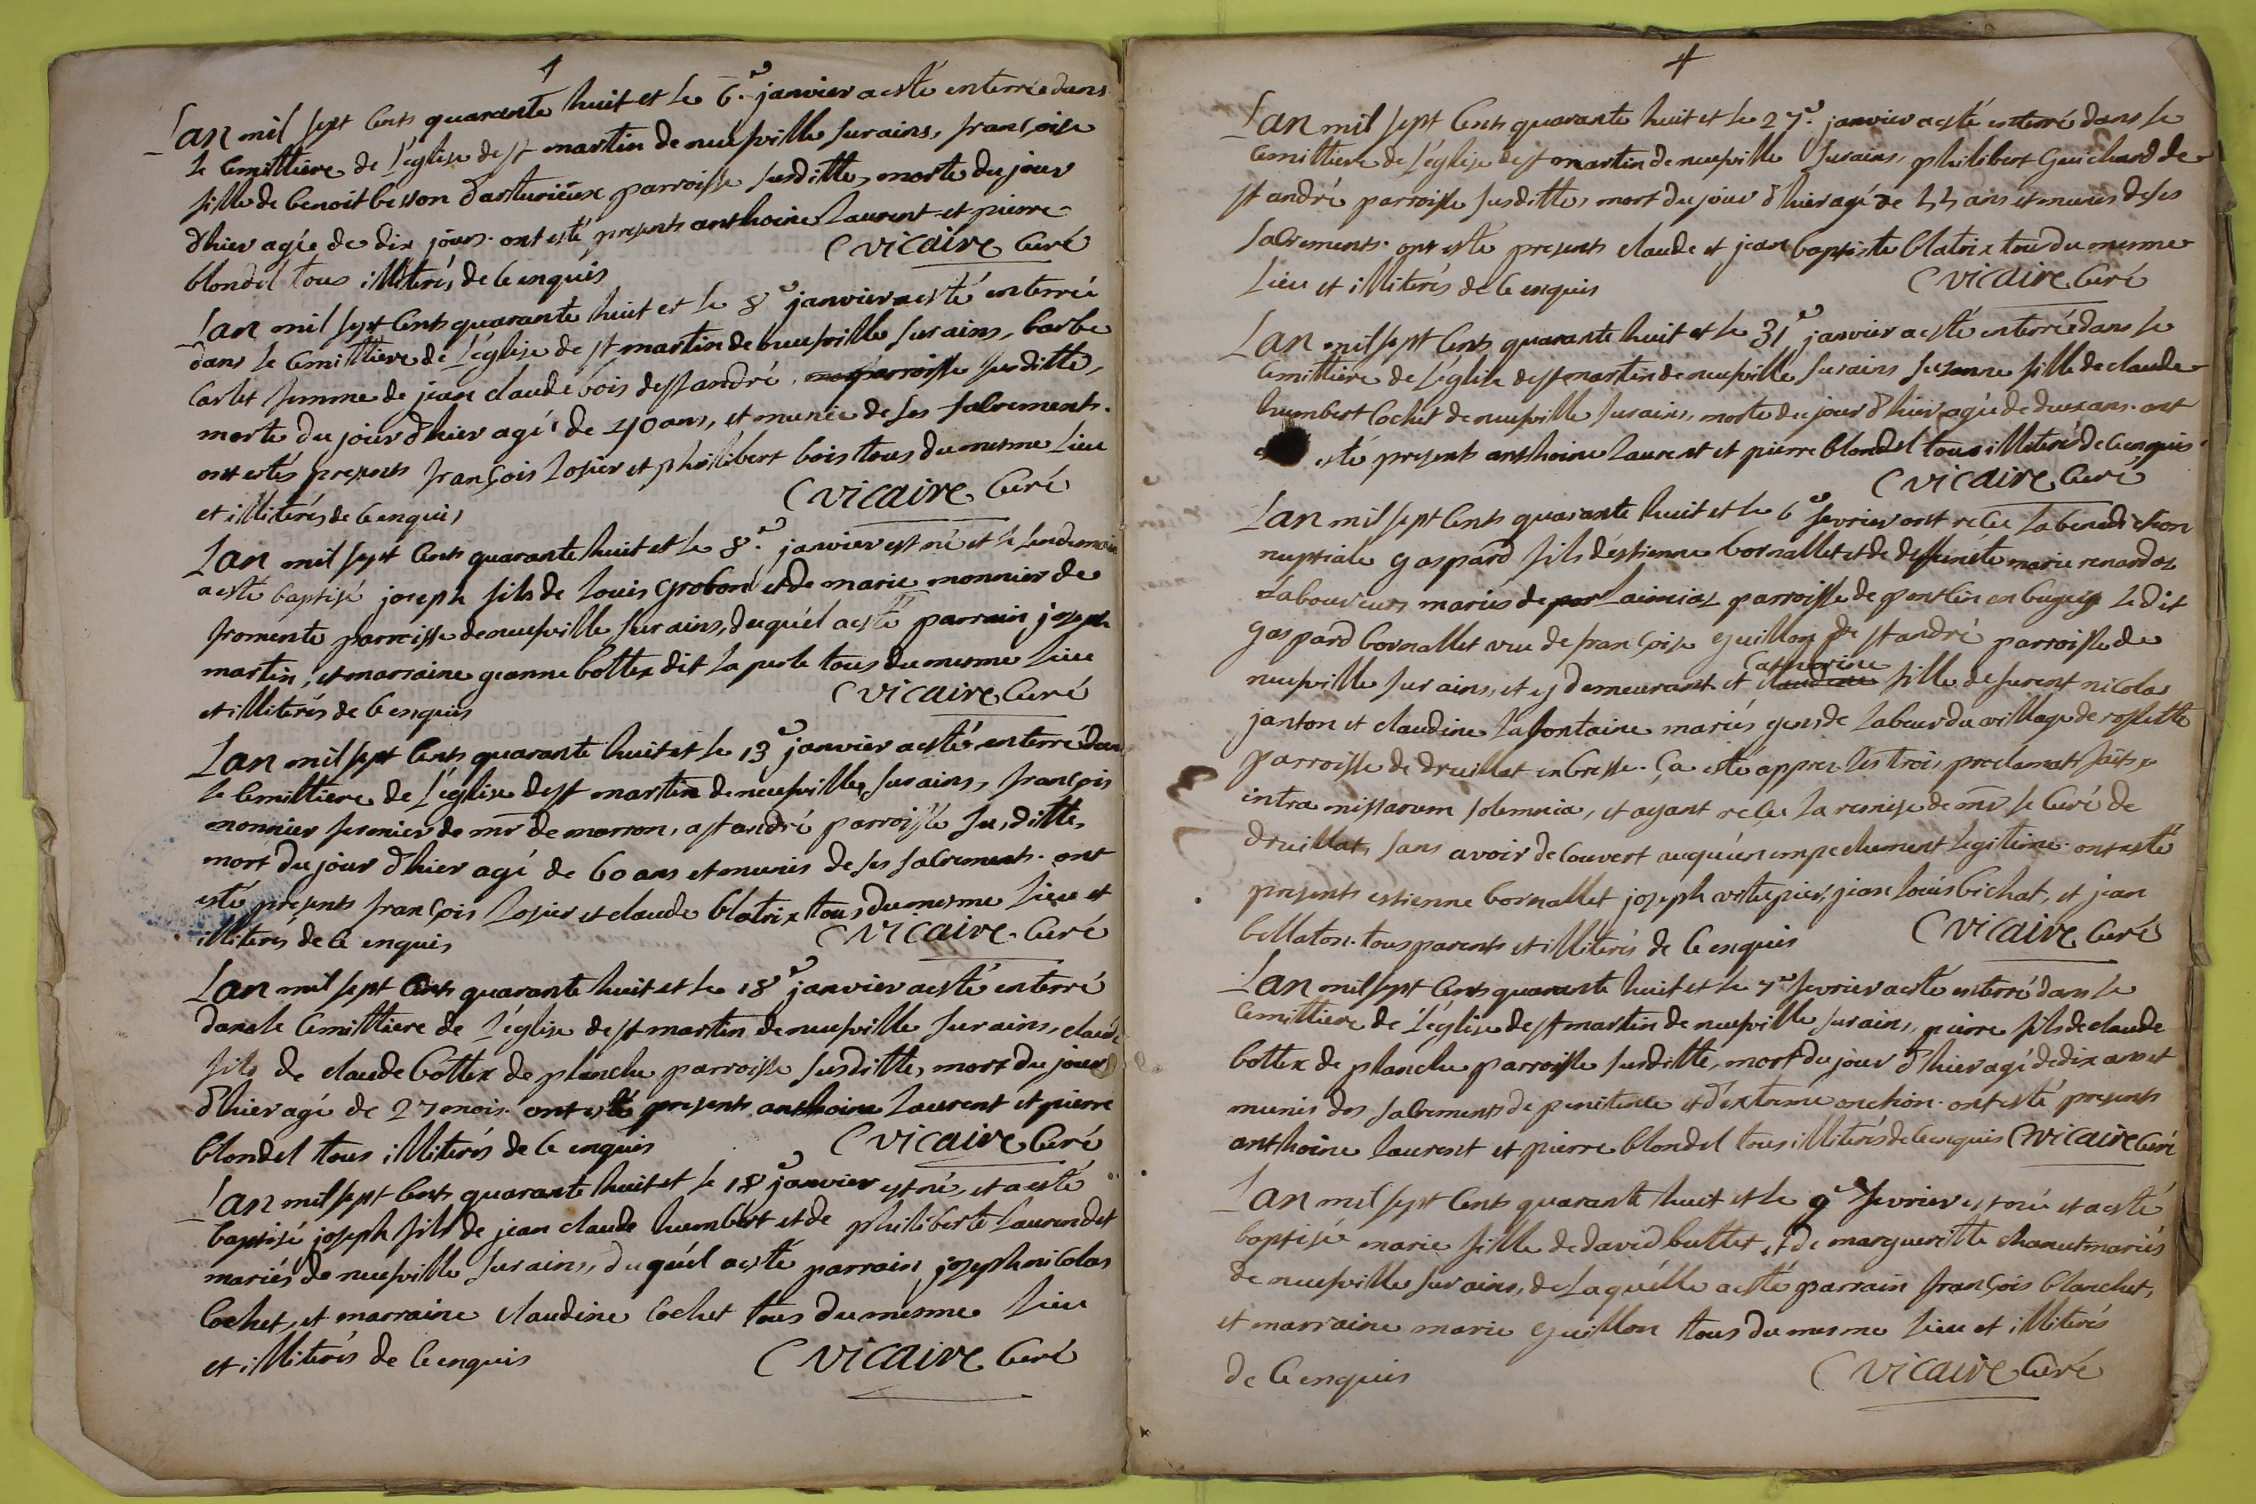 Lan mil sept Cents quarante huit et le 6.e janvier a esté enterrée dans
le Cemittiere de l'église de st martin de neufville sur ains, françoise
fille de benoit besson d'asturieux parroisse susditte, morte du jour
d'hier agée de dix jours. ont esté presents anthoine Laurent et pierre
blondel tous illiterés de ce enquis
C vicaire Curé
Lan mil sept Cents quarante huit et le 8e janvier a esté enterrée
dans le Cemittiere de l'église de st martin de neufville sur ains, barbe
Carlet femme de jean claude bois de st andré, parroisse susditte,
morte du jour d'hier agée de 40 ans, et munie de ses sacrements.
ont estés presents françois Losier et philibert bois tous du mesme Lieu
et illiterés de ce enquis
C vicaire Curé
Lan mil sept Cents quarante huit et le 8.e janvier est né et le Lendemain
a esté baptisé joseph fils de Louis Grobon et de marie monnier de
fromente parroisse de neufville sur ains, duquél a esté parrain joseph
martin, et marraine jeanne bottex dit La perle tous du mesme Lieu
et illiterés de ce enquis
C vicaire Curé
Lan mil sept Cents quarante huit et le 13e janvier a esté enterré dans
le Cemittiere de l'église de st martin de neufville sur ains, françois
monnier fermier de mr de marron, a st andré parroisse susditte,
mort du jour d'hier agé de 60 ans et munis de ses sacrements. ont
esté presents françois Losier et claude blatrix tous du mesme Lieu et
illiterés de ce enquis
C vicaire Curé
Lan mil sept Cents quarante huit et le 18e janvier a esté enterré
dans le Cemittiere de l'église de st martin de neufville sur ains, claude
fils de claude bottex de planche parroisse susditte, mort du jour
d'hier agé de 27 mois. ont esté presents anthoine Laurent et pierre
blondel tous illiterés de ce enquis
C vicaire Curé
Lan mil sept Cents quarante huit et le 18e janvier est né, et a esté
baptisé joseph fils de jean claude humbert et de philiberte Laurendet
mariés de neufville sur ains, duquél a esté parrain joseph nicolas
Cochet, et marraine claudine Cochet tous du mesme Lieu
et illiterés de ce enquis
C vicaire Curé
Lan mil sept Cents quarante huit et le 27.e janvier a esté enterré dans le
Cemittiere de l'église de st martin de neufville sur ains, philibert Guichard de
st andré parroisse susditte, mort du jour d'hier agé de 55 ans et munis de ses
sacrements. ont esté presents claude et jean baptiste blatrix tous du mesme
Lieu et illiterés de ce enquis
C vicaire Curé
Lan mil sept Cents quarante huit et le 31e janvier a esté enterrée dans le
Cemittiere de l'église de st martin de neufville sur ains susanne fille de claude
humbert Cochet de neufville sur ains, morte du jour d'hier agée de deux ans. ont
esté presents anthoine Laurent et pierre blondel tous illiterés de ce enquis.
C vicaire Curé
Lan mil sept Cents quarante huit et le 6e fevrier ont reçu La benediction
nuptiale gaspard fils d'estienne bornallet et de deffuncte marie renardoz
Laboureurs mariés de Laimiaz parroisse de ponstin en bugey Ledit
gaspard bornallet veu de françoise guillon de st andré parroisse de
neufville sur ains, et y demeurant. et Catherine claudine fille de furent nicolas
janton et claudine Lafontaine mariés gens de Labeur du village de rossette
parroisse de druillat en bresse. Ça esté appres Les trois proclamats faits
intra missarum solemnia, et ayant reçu La remise de mr le Curé de
druillat, sans avoir decouvert aucqu'un empechement Legitime. ont esté
presents estienne bornallet joseph jean Louis bichat, et jean
bellaton. tous parents et illiterés de ce enquis
C vicaire Curé
Lan mil sept Cents quarante huit et le 7e fevrier a esté enterré dans le
Cemittiere de l'église de st martin de neufville sur ains, pierre fils de claude
bottex de planche parroisse susditte, mort du jour d'hier agé de dix ans et
munis des sacrements de penitence et d'extreme onction. ont esté presents
anthoine Laurent et pierre blondel tous illiterés de ce enquis C vicaire Curé
Lan mil sept Cents quarante huit et le 9e fevrier est née et a esté
baptisée marie fille de david buttet, et de margueritte chanut mariés
de neufville sur ains, de Laquélle a esté parrain françois blanchet,
et marraine marie guillon tous du mesme Lieu et illiterés
de ce enquis
C vicaire Curé